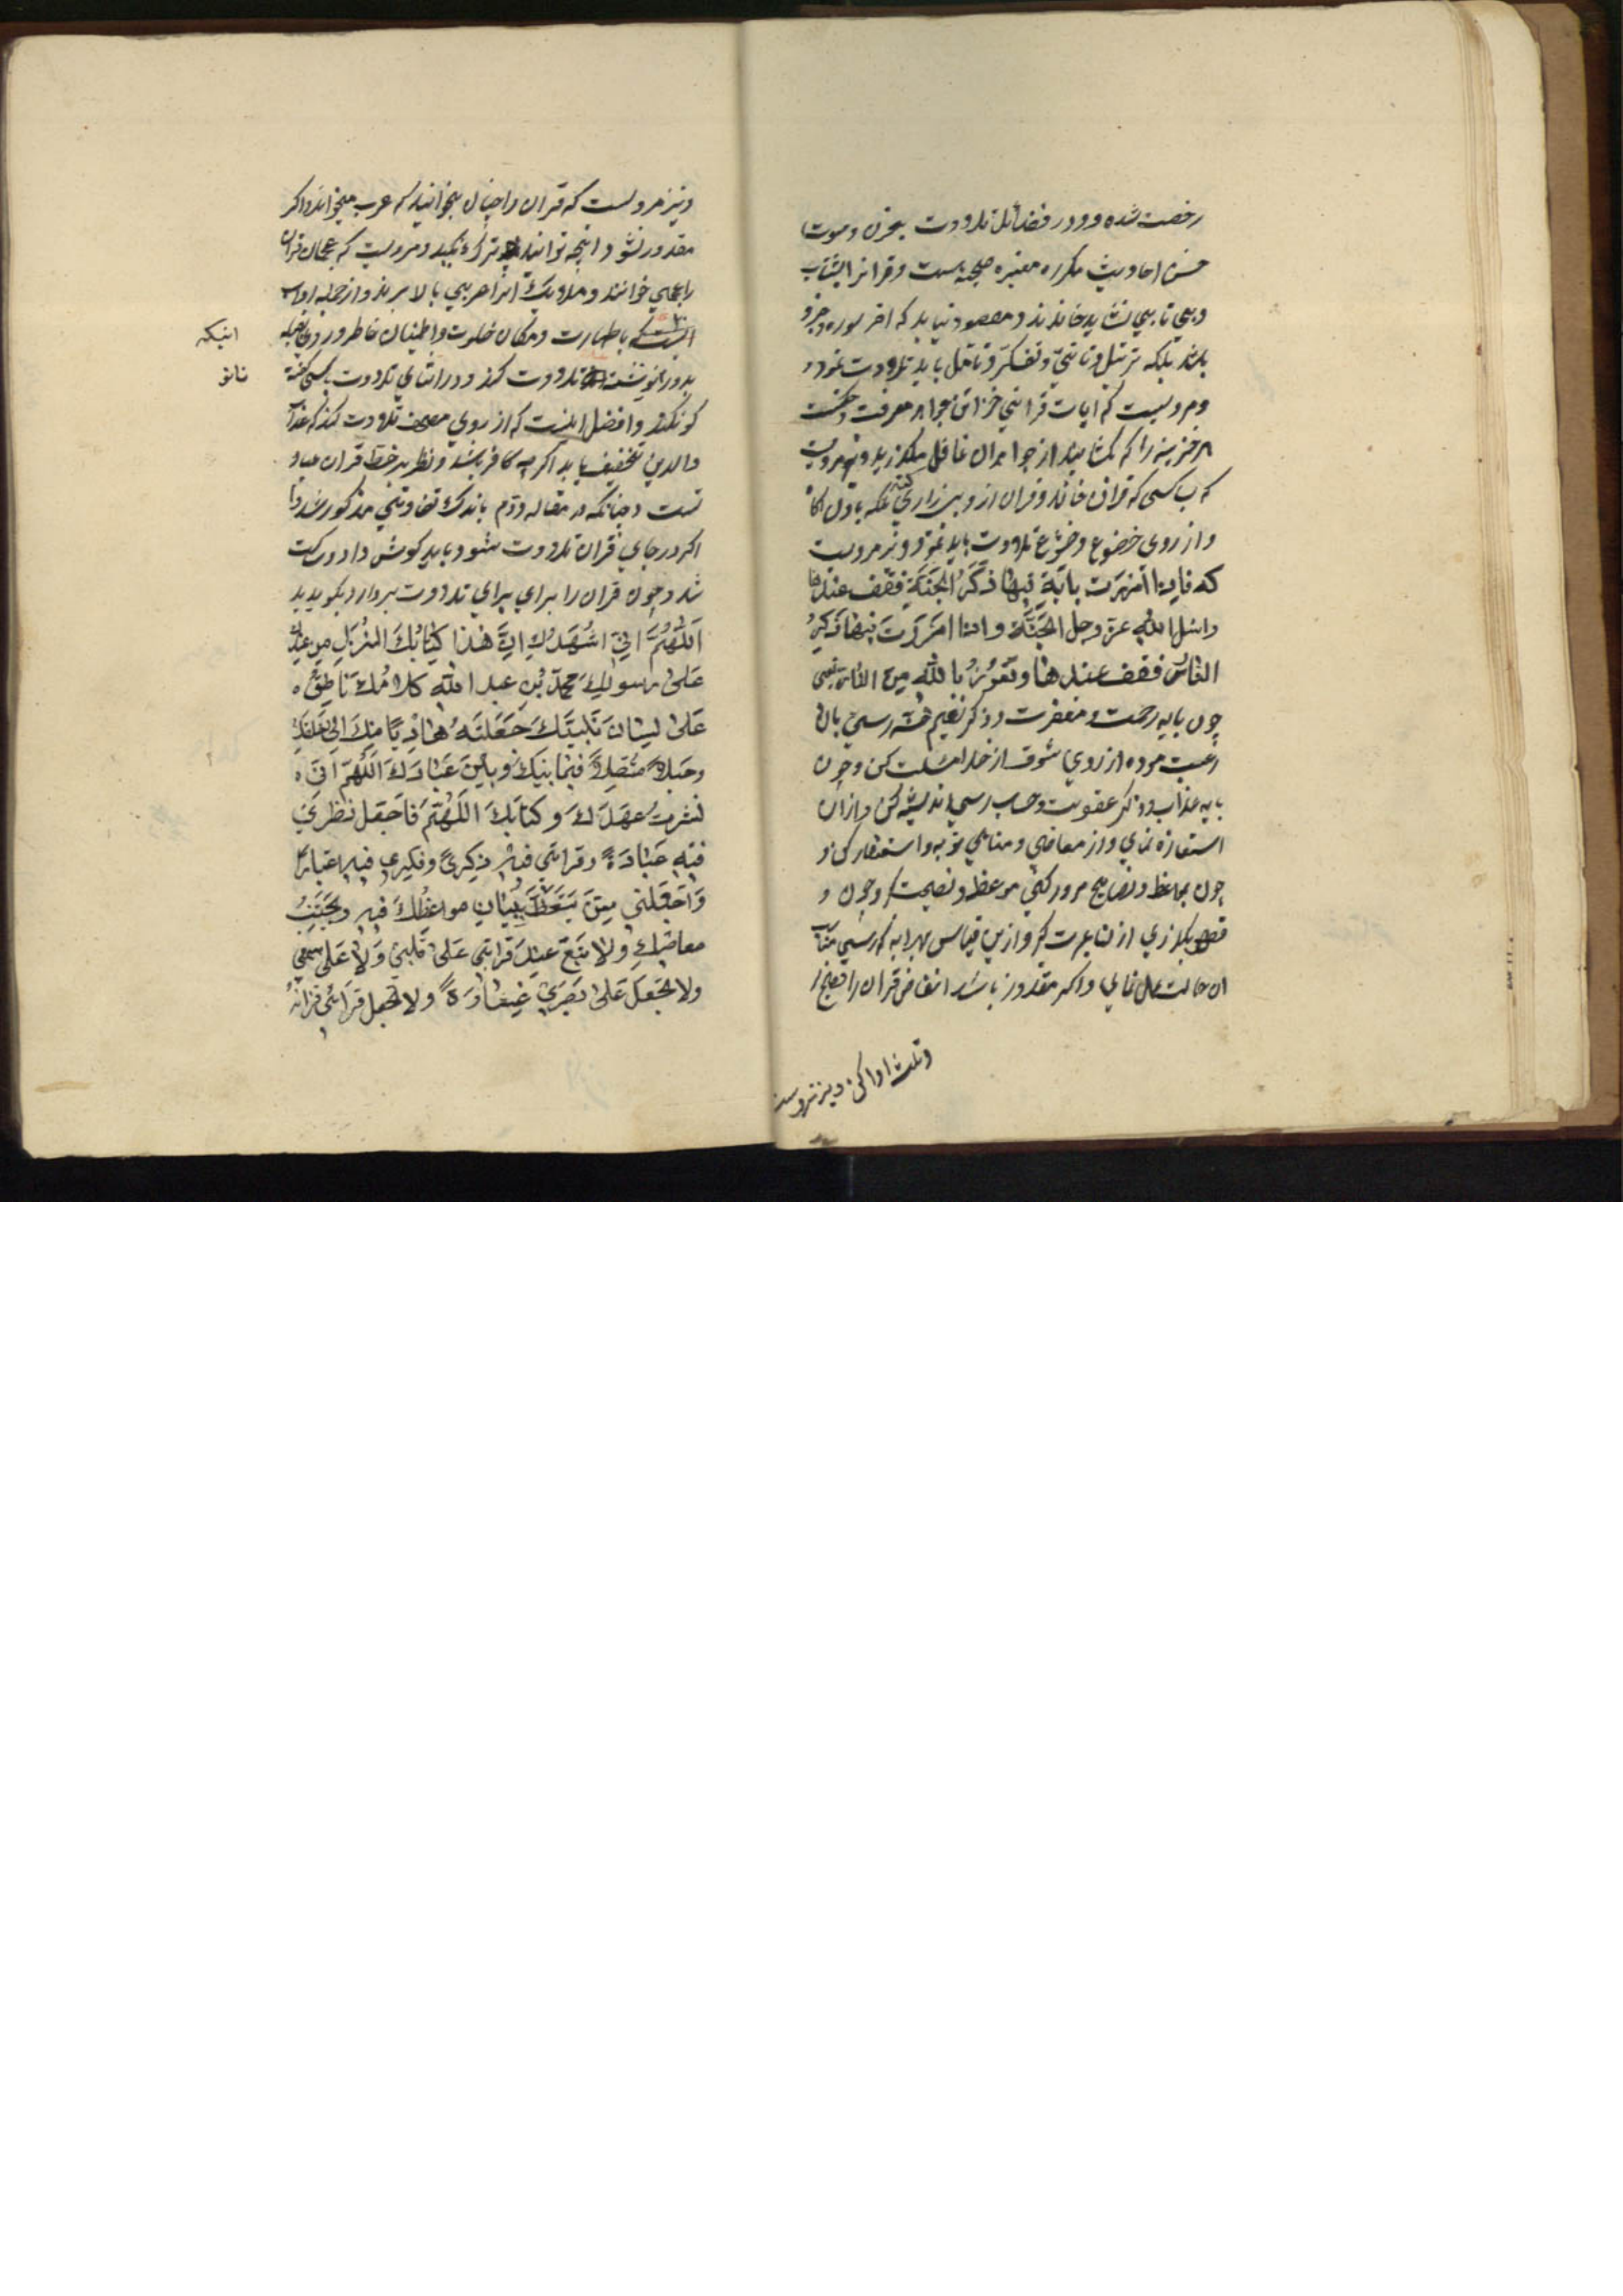 رخصت شده و در فضائل تلاوت بحزن و صوت
حسن احادیث مکرره معتبره صحیحه است و قرانرا بشتاب
و پی تا پی نشاید خاندند و مقصود نباید که اخر سوره و جزو
باشد بلکه ترتیل و تانی و تفکر و تامل باید تلاوت نمود و
و مرویست که ایات قرانی خزائن جواهر معرفت و حکمت
هر خزینه را که بکشایند از جواهران غافل مکذرید و نیز مرویست
که بسا کسی که قران خاند و قران ازو بیزاری کند بلکه با دل اکاه
و از روی خضوع و خشوع تلاوت باید نمود و نیز مرویست
که فاذا امررت بایة فیها ذکر الجنة فقف عندها
واسئل الله عز وجل الجنة و اذا امررت فیها ذکر
النار فقف عندها و تعوذ بالله من النار یعنی
چون بایه رحمت و مغفرت و ذکر نعیم جنة رسی بان
رغبت نموده از روی شوق از خدا مسئلت کن و چون
بایه عذاب و ذکر عقوبت و حساب رسی اندیشه کن و ازان
استعاذه نمای و از معاصی و مناهی توبه و استغفار کن و
چون بمواعظ و نصایح مرور کنی موعظه و نصیحت و چون و
قصص بکذری ازانها عبرت گیر و ازین قیاس بهر ایه که رسی مناسب
ان حالت عمل نمای و اکر مقدور باشد الفاظ قران را فصیح
و ادا کن و نیز مرویست
و نیز مرویست که قران را چنان بخوانید که عرب میخوانند و اکر
مقدور نشود انچه توانید ترک نکنید و مرویست که عجمان قران
را بعجمی خوانند و ملایک انرا عربی بالا برند و از جمله اداب
انست که با طهارت و مکان خلوت و اطمینان خاطر و رو بقبله
بدو زانو نشسته تلاوت کند و در اثنای تلاوت بکسی گفته
کو نکند و افضل انست که از روی مصحف تلاوت کند که عذاب
والدین تخفیف یابد اکر چه کافر باشند و نظر بر خط قران عباد
تست و چنانکه در مقاله دوم باندک تفاوتی مذکور شد و
اکر در جای قران تلاوت شود باید کوش داد و ساکت
شد و چون قران را برای برای تلاوت بردارد بکوید
اللهم انی اشهد ان هذا کتابک المنزل من عندک
علی رسولک محمد بن عبد الله کلامک ناطق
علی لسان نبیک جعلته هادیا منک الی خلقک
وحبلا متصلا فیما بینک و بین عبادک اللهم انی
نشرت عهدک و کتابک اللهم فاجعل نظری
فیه عبادة و قراتی فیه ذکری و فکری فیه اعتبارا
واجعلنی ممن یتعظ ببیان مواعظک فیه و یجتنب
معاصیک ولا تطبع عند قراتی علی قلبی ولا علی سمعی
ولا تجعل علی بصری غشاوة ولا تجعل قرائتی قرائة
اینکه
زانو